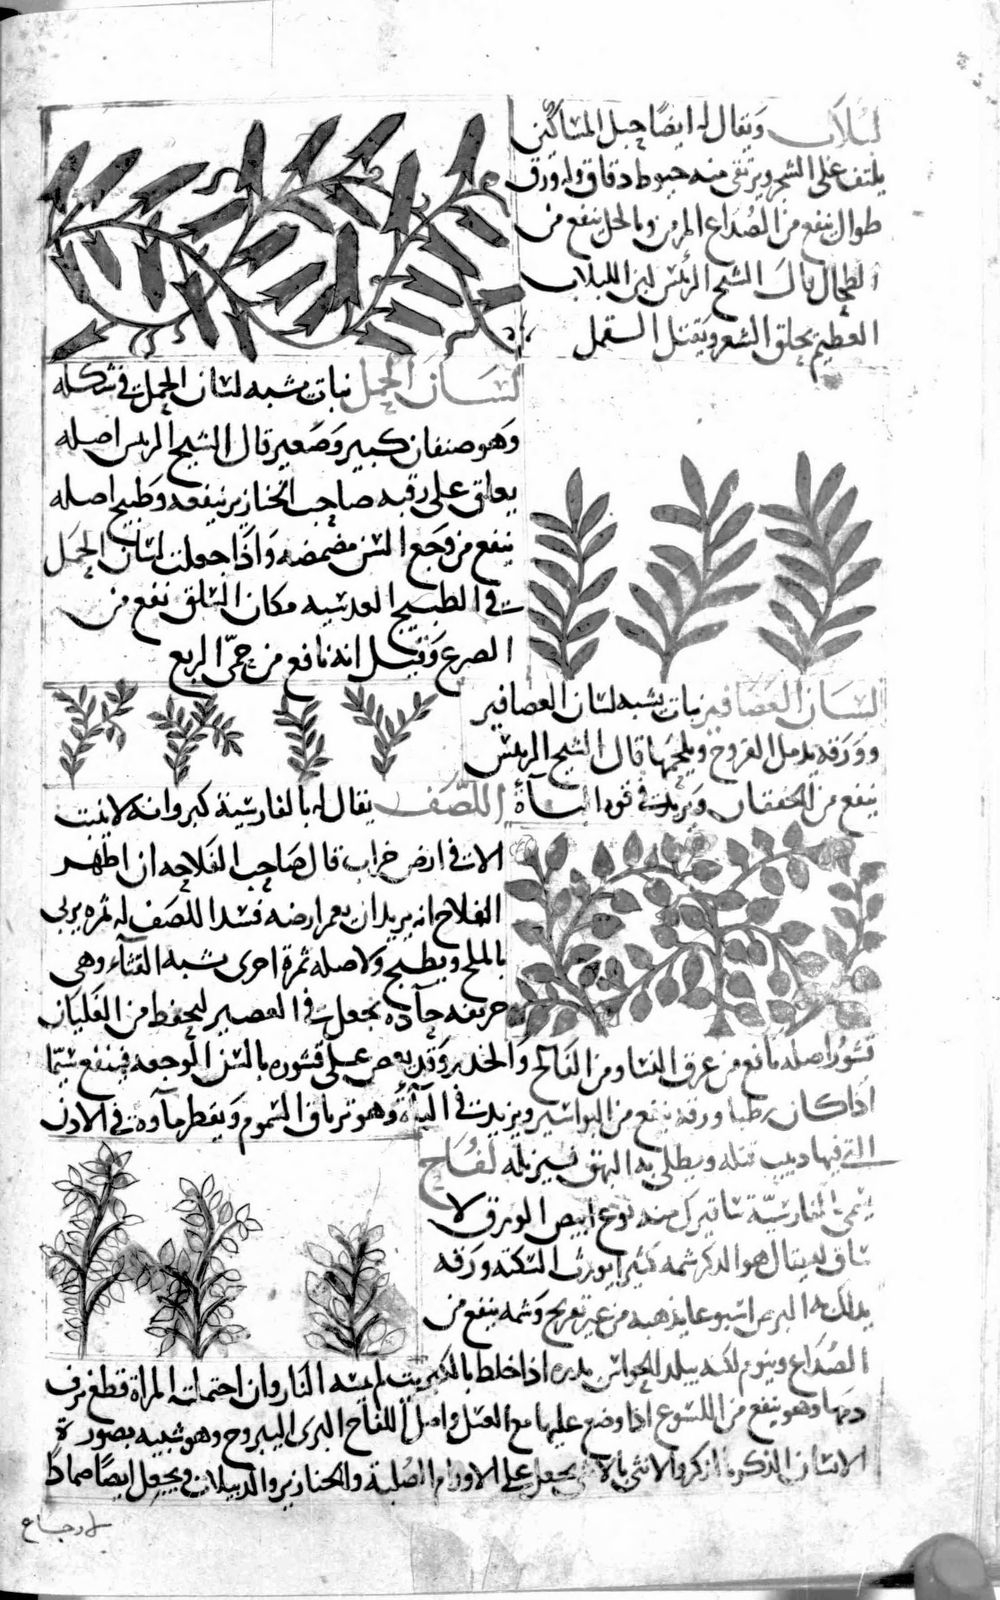 لبلاب ويقال له ايضا حبل المساكين
يلتف على الشجر ويرتقى منه خيوط دقاق وله ورق
طوال ينفع من الصداع المزمن وبالخل ينفع من
الطحال قال الشيخ الرئيس لبن اللبلاب
العظيم يحلق الشعر ويقتل القمل
لسان الحمل نبات يشبه لسان الحمل في شكله
وهو صنفان كبير وصغير قال الشيخ الريس اصله
يعلق على رقبه صاحب الخنازير ينفعه وطبيخ اصله
ينفع من وجع السن مضمضه واذا جعلت لسان الحمل
في الطبيخ العدسيه مكان السلق نفع من
الصرع وقيل انه نافع من حمى الربع
لسان العصافير نبات يشبه لسان العصافير
وورقه يدمل القروح ويلحمها قال الشيخ الريس
ينفع من الخفقان ويزيد في قوه الباءة
اللصف يقال له بالفارسية كبر وانه لا ينبت
الا في ارض خراب قال صاحب الفلاحه ان اظهر
الفلاح انه يريد ان يعمر ارضه فسد اللصف له ثمره يربى
بالملح ويطبخ ولاصله ثمرة اخرى شبه القثاء وهى
حريفه حاده تجعل في العصير ليحفظ من الغليان
قشور اصله نافع من عرق النسا ومن الفالج والخدر وقد يعض على قشوره بالسن الوجعه فينفع سيما
اذا كان رطبا ورقه ينفع من البواسير ويزيد في الباءة وهو ترياق السموم ويقطر ماؤه في الاذن
التي فيها دبيب فتله ويطلى به البهق فيزيله لفاح
يسمى بالفارسية منه نوع ابيض الورق لا
ساق له يقال هو الذكر شمه كثيرا يورث السكته ورقه
يدلك به البرص اسبوعا يذهبه من غير تقريح وشمه ينفع من
الصداع وينوم لكنه يبلد الحواس بذره اذا خلط بالكبريت لم يمسه النار وان احتملته المراة قطع نزف
دمها وهو ينفع من اللسوع اذا وضع عليها مع العسل واصل اللفاح البرى اليبروح وهو شبيه بصورة
الانسان الذكر والانثى بالانثى يجعل على الاورام الصلبة والخنازير والدبيلات ويجعل ايضا ضمادا